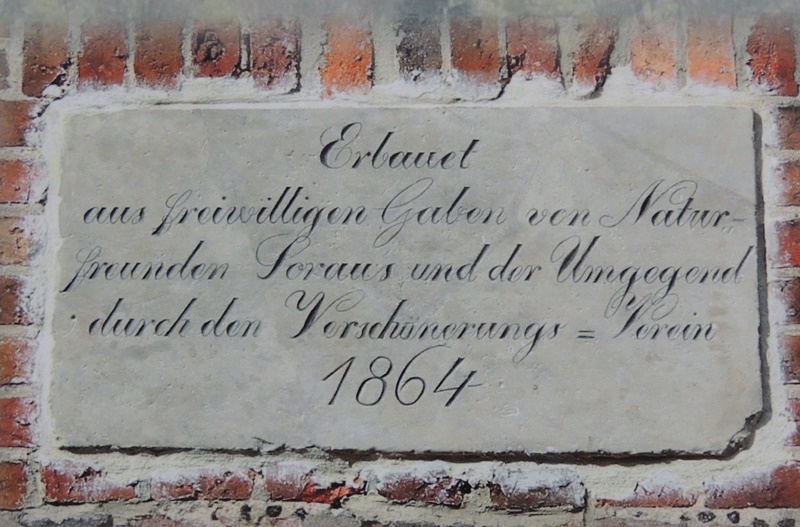 Erbauet
aus freiwilligen Gaben von Natur-
freunden Soraus und der Umgegend
durch den Verschönerungs = Verein
1864